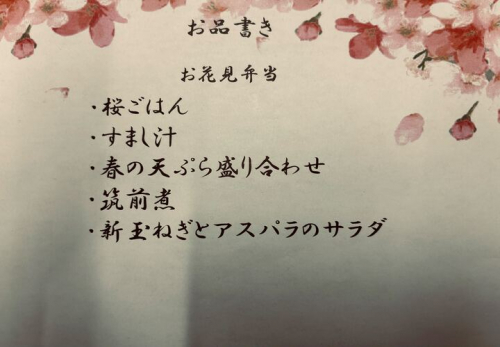 お品書き
お花見弁当
・桜ごはん
・すまし汁
・春の天ぷら盛り合わせ
・筑前煮
・新玉ねぎとアスパラのサラダ